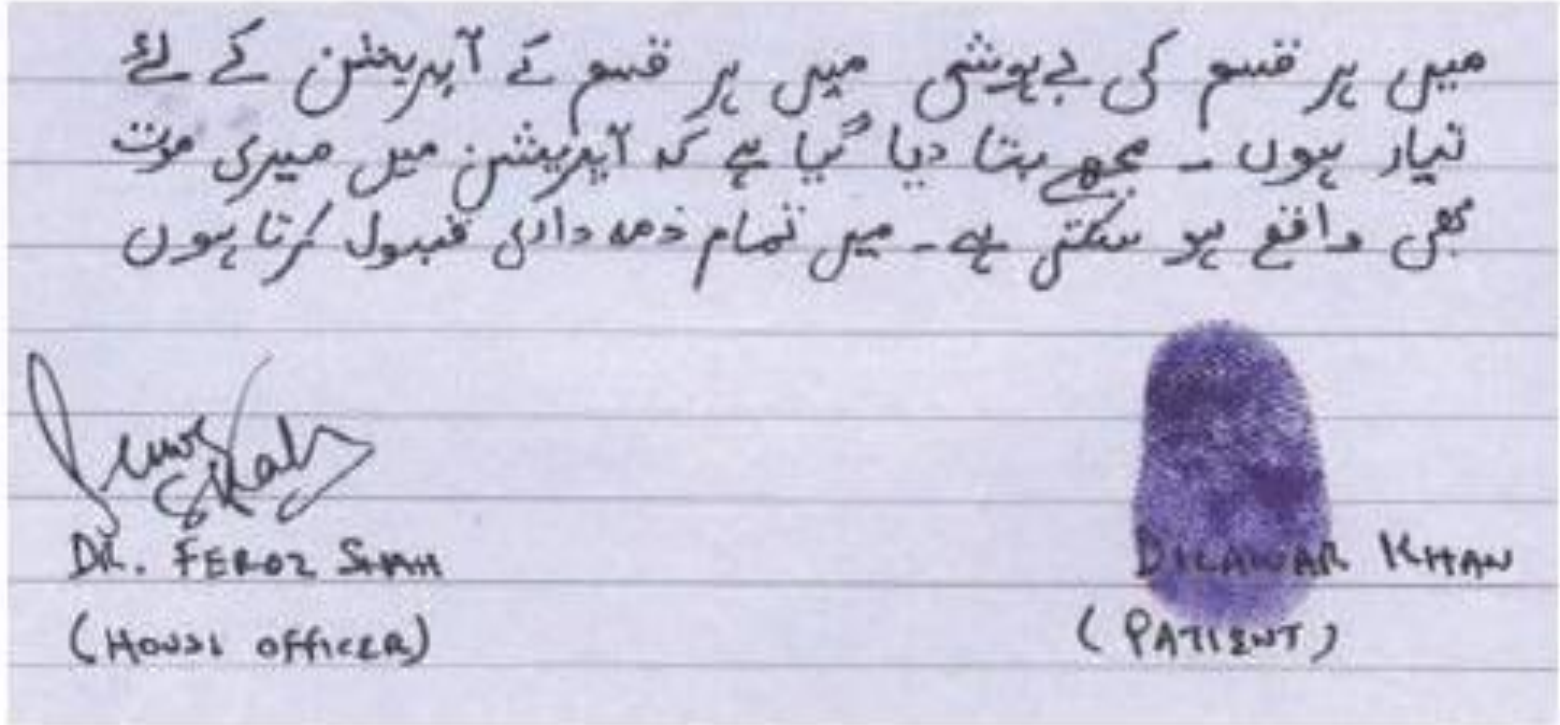 میں ہر قسم کی بےہوشی میں ہر قسم کے آپریشن کے لئے
تیار ہوں ۔ مجھے بتا دیا گیا ہے کہ آپریشن میں میری موت
بھی واقع ہو سکتی ہے ۔ میں تمام ذمہ داری قبول کرتا ہوں
Feroz Shah
DR. FEROZ SHAH
DILAWAR KHAN
(HOUSE OFFICER)
(PATIENT)